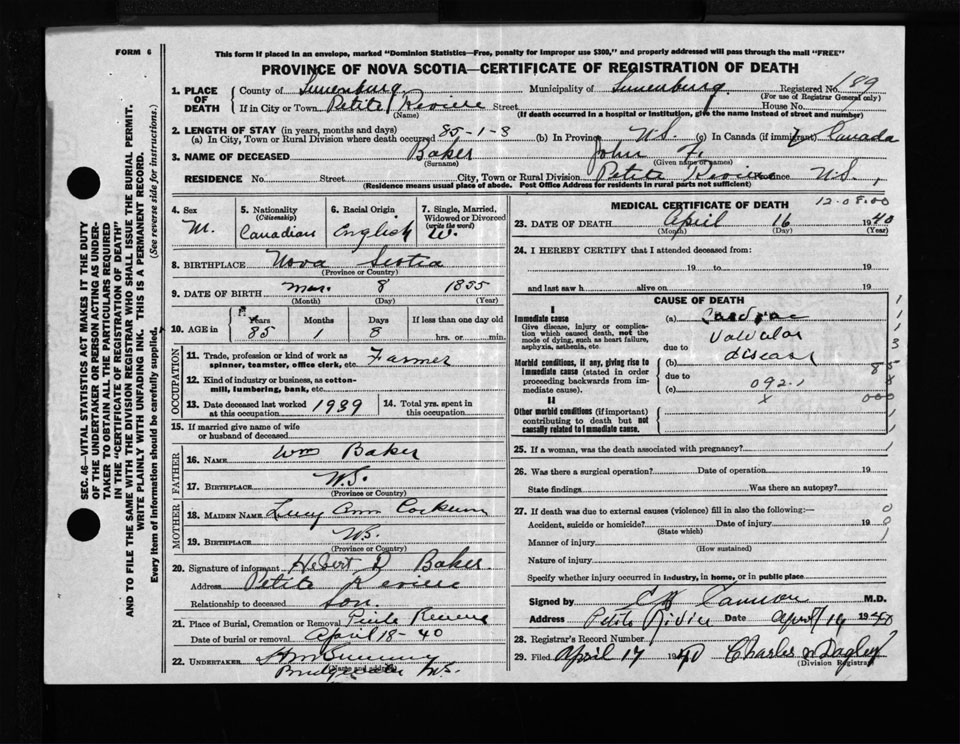 FORM 6
This form if placed in an envelope, marked "Dominion Statistics—Free, penalty for improper use $300," and properly addressed will pass through the mail "FREE"
PROVINCE OF NOVA SCOTIA—CERTIFICATE OF REGISTRATION OF DEATH
SEC. 46—VITAL STATISTICS ACT MAKES IT THE DUTY
OF THE UNDERTAKER OR PERSON ACTING AS UNDER-
TAKER TO OBTAIN ALL THE PARTICULARS REQUIRED
IN THE "CERTIFICATE OF REGISTRATION OF DEATH"
AND TO FILE THE SAME WITH THE DIVISION REGISTRAR WHO SHALL ISSUE THE BURIAL PERMIT.
WRITE PLAINLY WITH UNFADING INK. THIS IS A PERMANENT RECORD.
Every item of Information should be carefully supplied. (See reverse side for instructions.)
1. PLACE OF DEATH County of Lunenburg Municipality of Lunenburg Registered No. 189
(For use of Registrar General only)
If in City or Town Petite Reviere Street House No.
(Name) (If death occurred in a hospital or institution, give the name instead of street and number)
2. LENGTH OF STAY (in years, months and days)
(a) In City, Town or Rural Division where death occurred 85-1-8 (b) In Province N.S. (c) In Canada (if immigrant) Canada
3. NAME OF DECEASED Baker John F.
(Surname) (Given name or names)
RESIDENCE No. Street City, Town or Rural Division Petite Reviere Province N.S.
(Residence means usual place of abode. Post Office Address for residents in rural parts not sufficient)
4. Sex M.
5. Nationality (Citizenship) Canadian
6. Racial Origin English
7. Single, Married, Widowed or Divorced (write the word) W.
8. BIRTHPLACE Nova Scotia
(Province or Country)
9. DATE OF BIRTH Mar. 8 1855
(Month) (Day) (Year)
10. AGE in Years 85 Months 1 Days 8 If less than one day old
hrs. or min.
OCCUPATION
11. Trade, profession or kind of work as spinner, teamster, office clerk, etc. Farmer
12. Kind of industry or business, as cotton-mill, lumbering, bank, etc.
13. Date deceased last worked at this occupation 1939
14. Total yrs. spent in this occupation
15. If married give name of wife or husband of deceased
FATHER
16. NAME Wm Baker
17. BIRTHPLACE N.S.
(Province or Country)
MOTHER
18. MAIDEN NAME Lucy Ann
19. BIRTHPLACE N.S.
(Province or Country)
20. Signature of informant D Baker
Address Petite Reviere
Relationship to deceased Son
21. Place of Burial, Cremation or Removal Petite Reviere
Date of burial or removal April 18-40
22. UNDERTAKER
(Name and address)
Bridgewater N.S.
MEDICAL CERTIFICATE OF DEATH 12-08.00
23. DATE OF DEATH April 16 1940
(Month) (Day) (Year)
24. I HEREBY CERTIFY that I attended deceased from:
19 to 19
and last saw h alive on 19
CAUSE OF DEATH
I
Immediate cause
Give disease, injury or complication which caused death, not the mode of dying, such as heart failure, asphyxia, asthenia, etc.
(a) Cardiac
Valvular
due to disease
Morbid conditions, if any, giving rise to immediate cause (stated in order proceeding backwards from immediate cause).
(b)
due to
(c) 092.1
x
II
Other morbid conditions (if important) contributing to death but not causally related to immediate cause.
25. If a woman, was the death associated with pregnancy?
26. Was there a surgical operation? Date of operation 19
State findings Was there an autopsy?
27. If death was due to external causes (violence) fill in also the following:—
Accident, suicide or homicide? Date of injury 19
(State which)
Manner of injury
(How sustained)
Nature of injury
Specify whether injury occurred in industry, in home, or in public place
Signed by Cannon M.D.
Address Petite Rivière Date April 16 1940
28. Registrar's Record Number
29. Filed April 17 1940 Charles W Dagley
(Division Registrar)